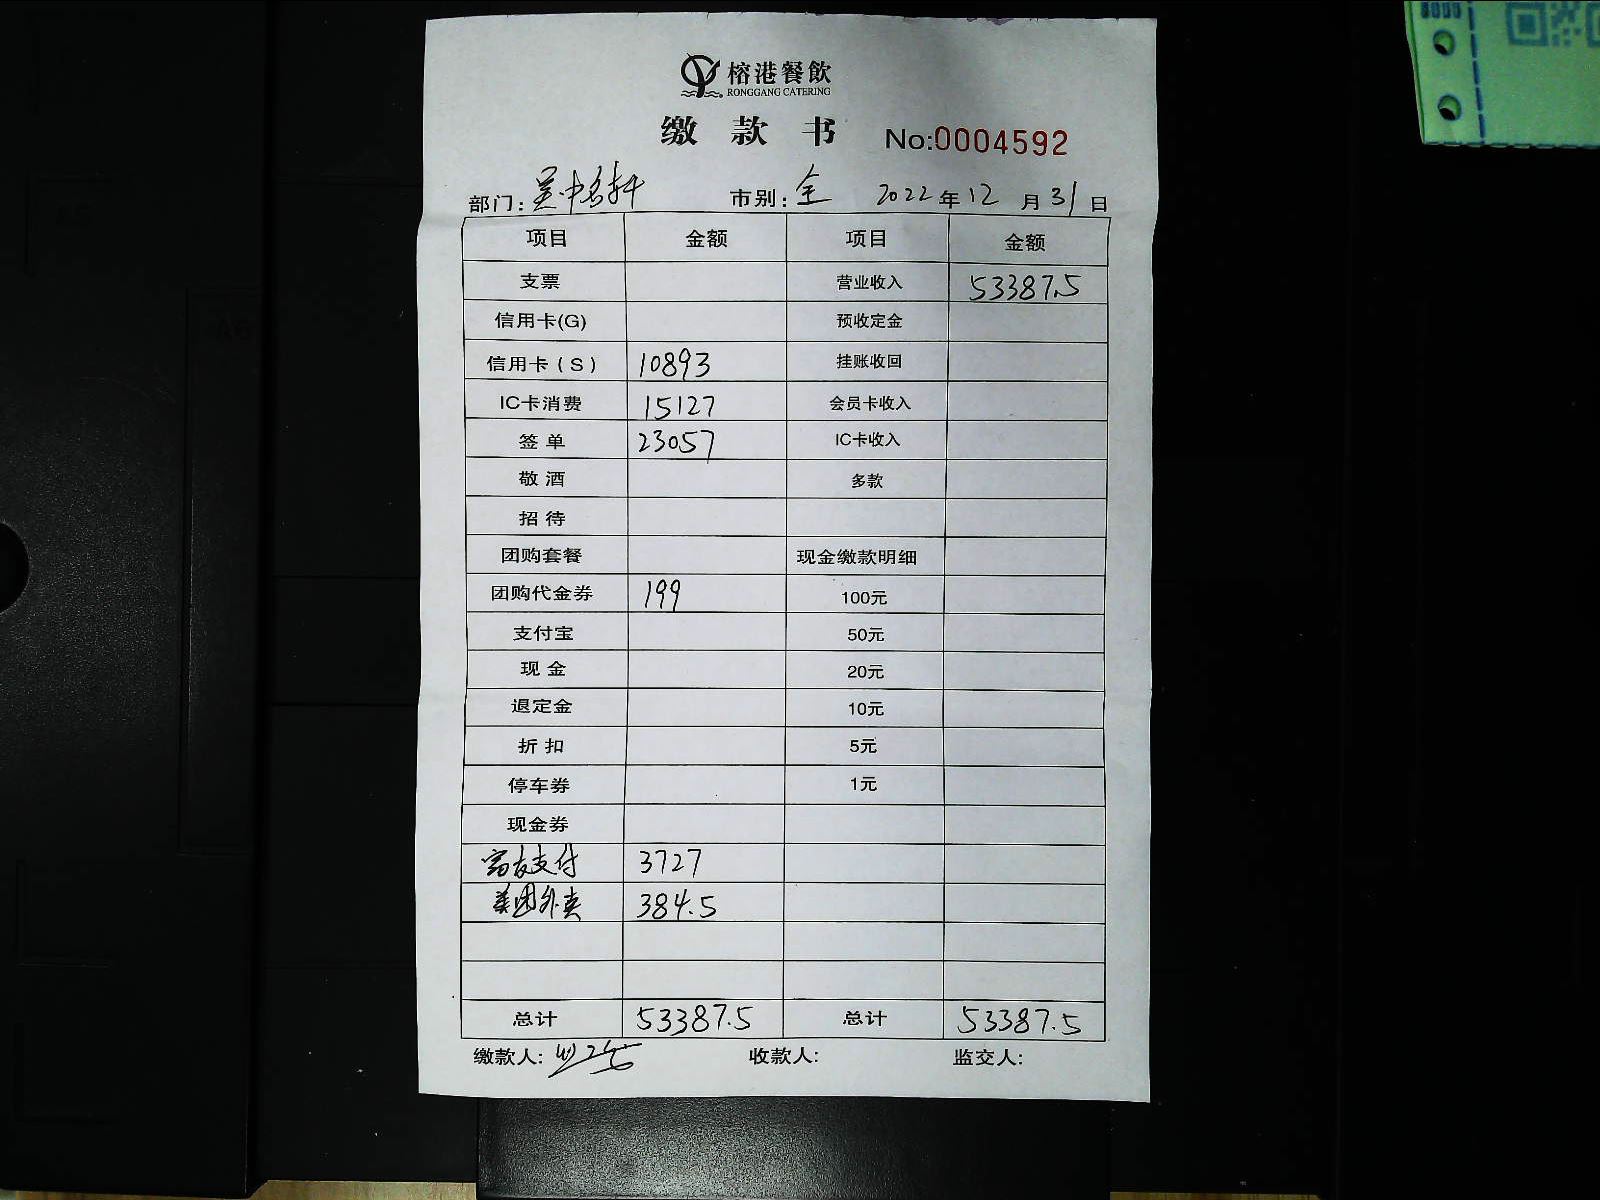 榕港餐飲
RONGGANG CATERING
缴款书 No:0004592
部门: 吴中名轩 市别: 全 2022年12月31日
项目 金额 项目 金额
支票 营业收入 53387.5
信用卡(G) 预收定金
信用卡(S) 10893 挂账收回
IC卡消费 15127 会员卡收入
签单 23057 IC卡收入
敬酒 多款
招待
团购套餐 现金缴款明细
团购代金券 199 100元
支付宝 50元
现金 20元
退定金 10元
折扣 5元
停车券 1元
现金券
富友支付 3727
美团外卖 384.5
总计 53387.5 总计 53387.5
缴款人: 收款人: 监交人: